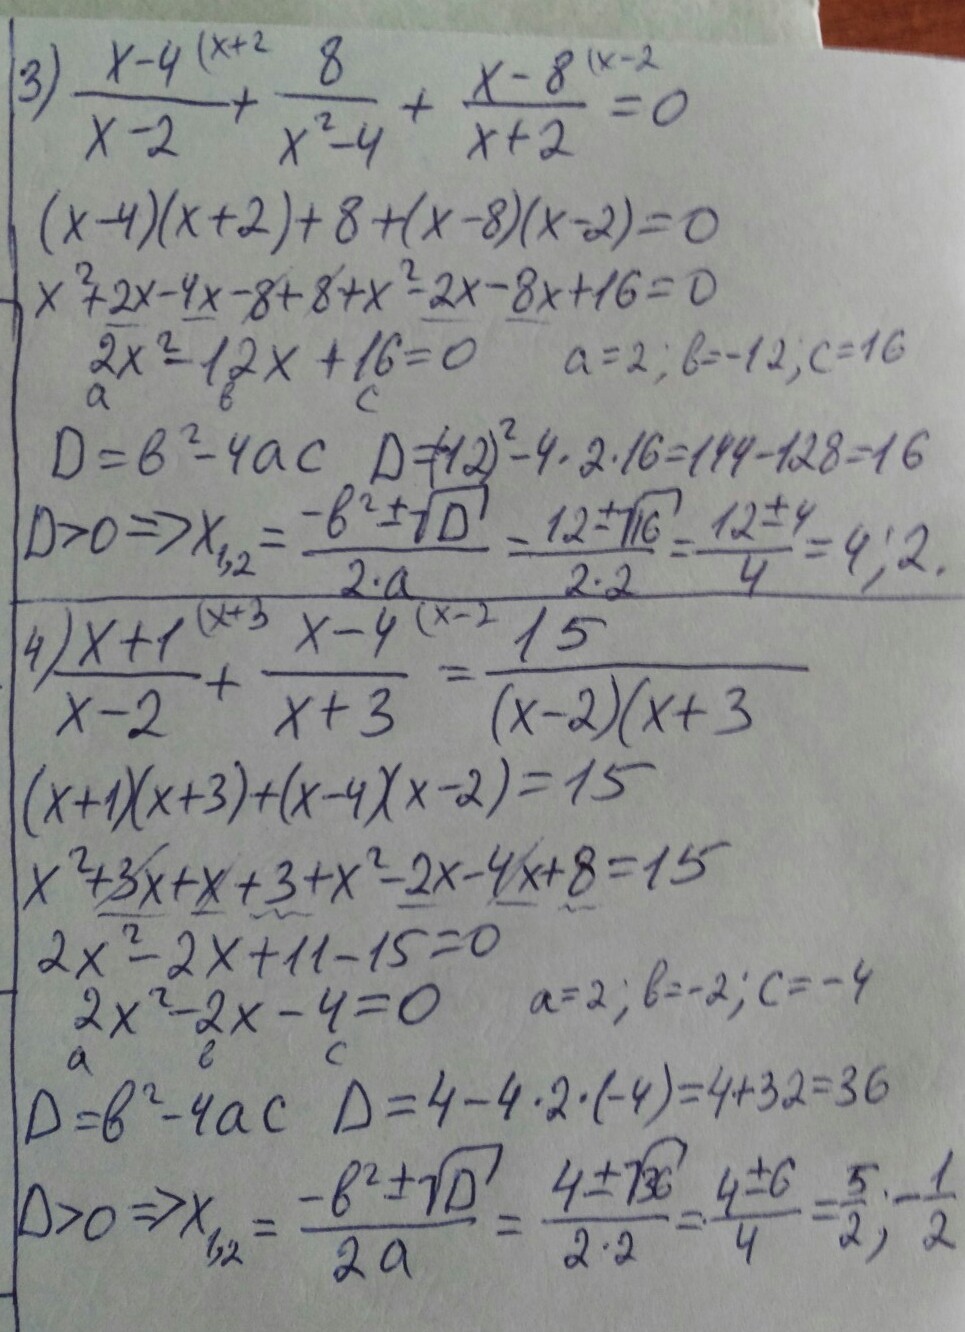 3) (x-4 (x+2)/(x-2) + 8/(x²-4) + (x-8 (x-2)/(x+2) = 0
(x-4)(x+2)+8+(x-8)(x-2)=0
x²+2x-4x-8+8+x²-2x-8x+16=0
2x²-12x+16=0 a=2; в=-12; c=16
a в c
D=в²-4ac D=(-12)²-4·2·16=144-128=16
D>0=>x₁,₂=(-в²±√D)/(2·a)=(12±√16)/(2·2)=(12±4)/4=4;2.
4) (x+1 (x+3)/(x-2) + (x-4 (x-2)/(x+3) = 15/((x-2)(x+3
(x+1)(x+3)+(x-4)(x-2)=15
x²+3x+x+3+x²-2x-4x+8=15
2x²-2x+11-15=0
2x²-2x-4=0 a=2; в=-2; c=-4
a в c
D=в²-4ac D=4-4·2·(-4)=4+32=36
D>0=>x₁,₂=(-в²±√D)/(2a)=(4±√36)/(2·2)=(4±6)/4=5/2;-1/2